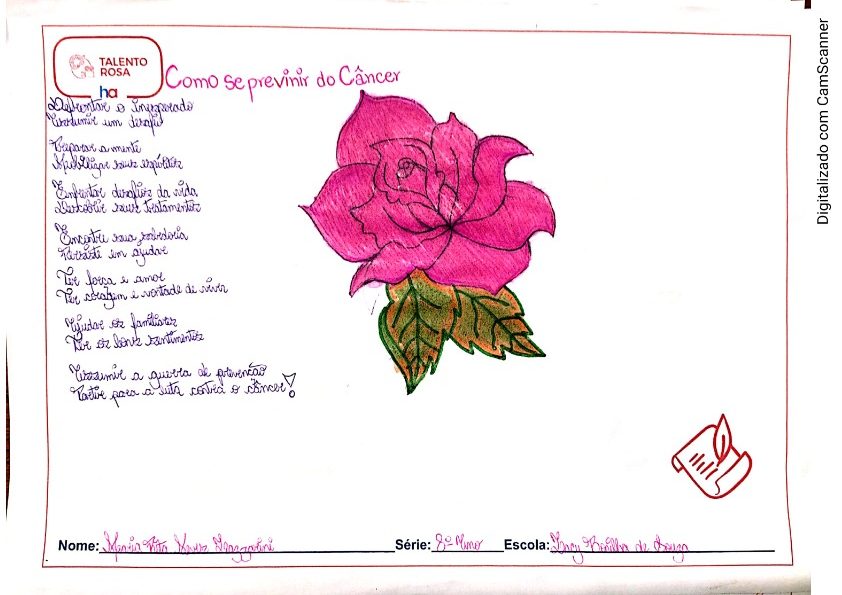 TALENTO
ROSA
ha
Como se previnir do Câncer
Defrontar o inesperado
Assumir um desafio
Preparar a mente
Mobilizar seus espíritos
Enfrentar desafios da vida
Descobrir seus tratamentos
Encontre sua sabedoria
Persisti em ajudar
Ter força e amor
Ter coragem e vontade de viver
Ajudar os familiares
Ter os bons sentimentos
Assumir a guerra de prevenção
Partir para a luta contra o câncer!
Nome: Maria Rita Série: 8º Ano Escola: de Souza
Digitalizado com CamScanner